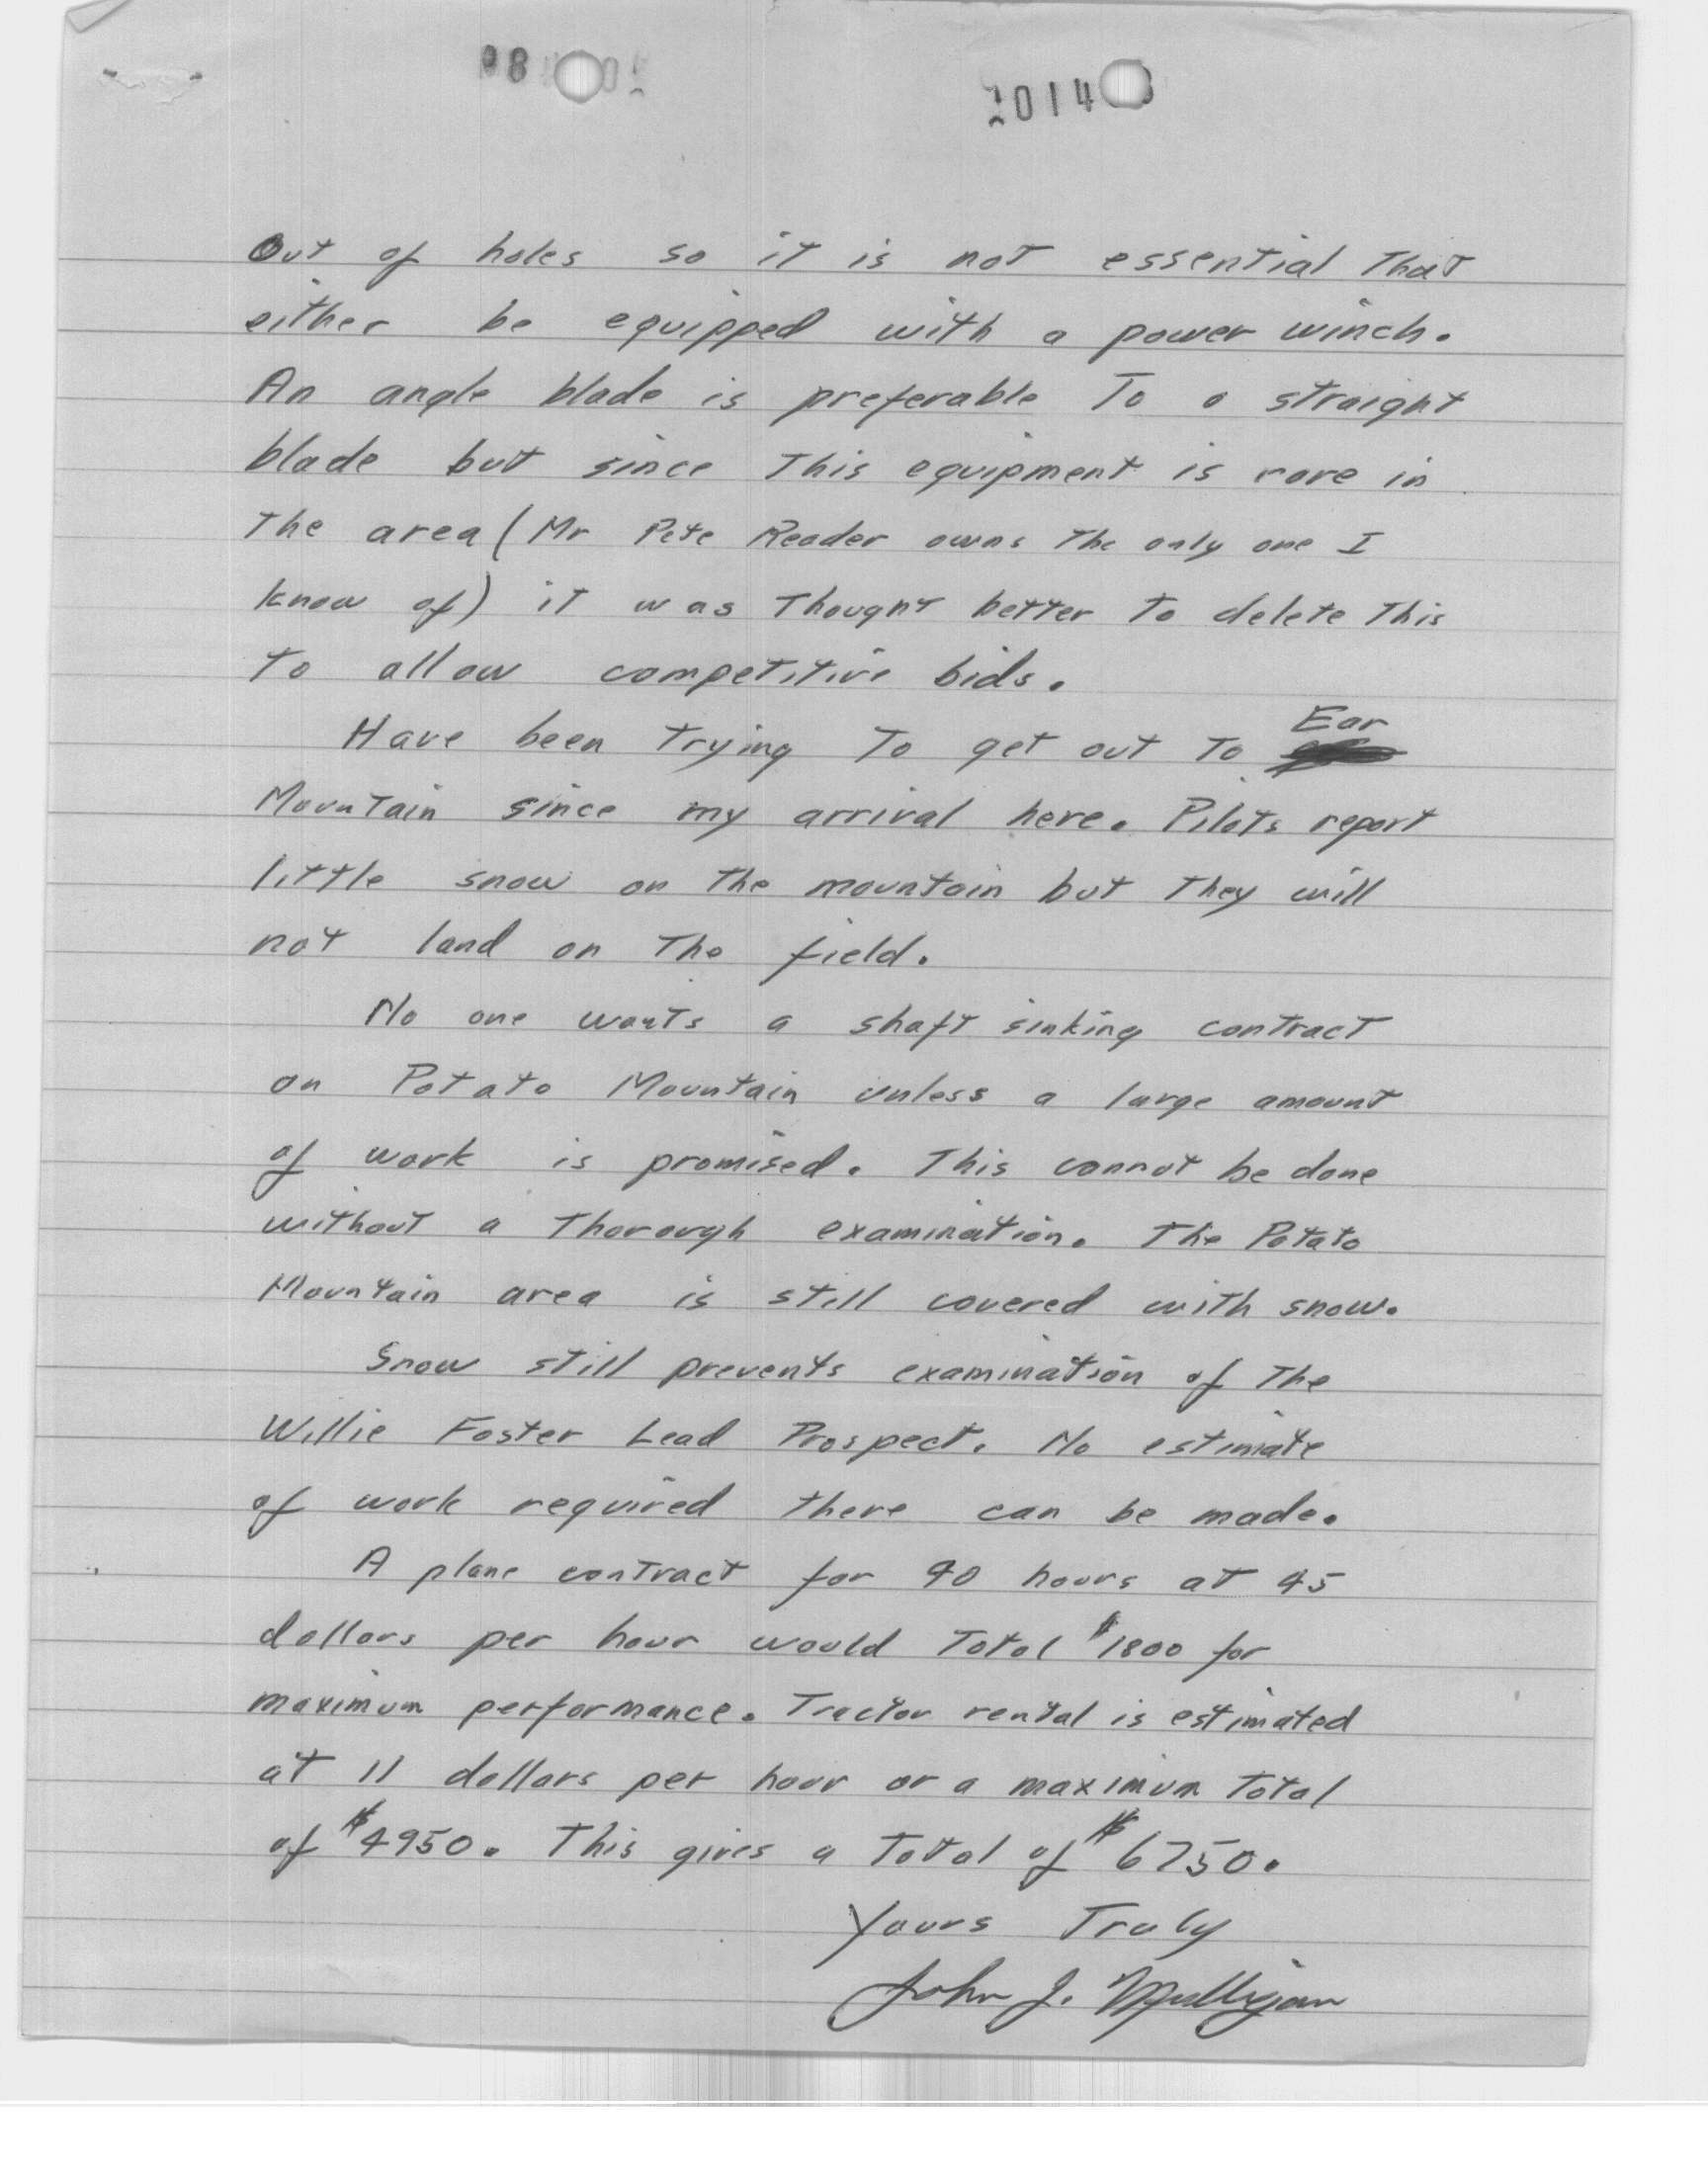 Out of holes so it is not essential that
either be equipped with a power winch.
An angle blade is preferable to a straight
blade but since this equipment is rare in
the area (Mr Pete Reader owns the only one I
know of) it was thought better to delete this
to allow competitive bids.
Have been trying to get out to Ear
Mountain since my arrival here. Pilots report
little snow on the mountain but they will
not land on the field.
No one wants a shaft sinking contract
on Potato Mountain unless a large amount
of work is promised. This cannot be done
without a thorough examination. The Potato
Mountain area is still covered with snow.
Snow still prevents examination of the
Willie Foster Lead Prospect. No estimate
of work required there can be made.
A plane contract for 40 hours at 45
dollars per hour would total $1800 for
maximum performance. Tractor rental is estimated
at 11 dollars per hour or a maximum total
of $4950. This gives a total of $6750.
Yours Truly
John J. Mulligan